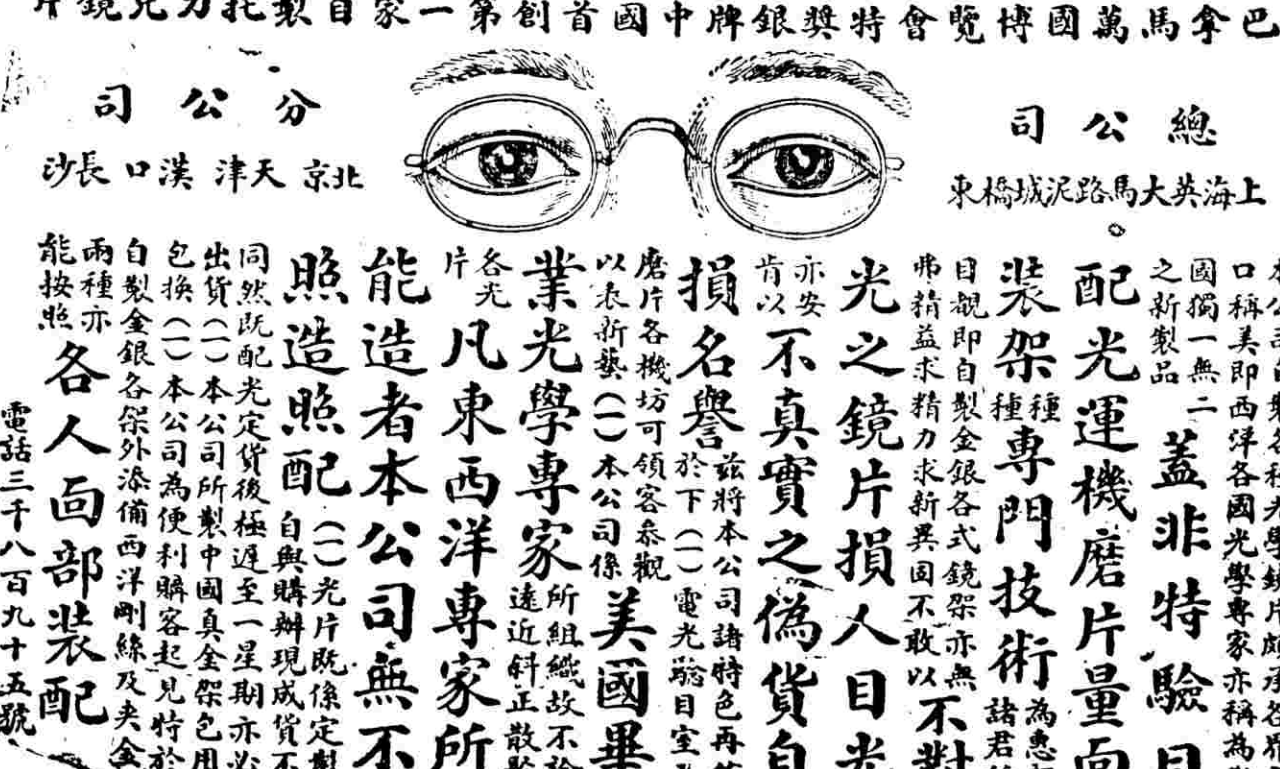 巴拿馬萬國博覽會特獎銀牌中國首創第一家自製托力克鏡片
總公司
上海英大馬路泥城橋東
分公司
北京 天津 漢口 長沙
本公司自製各種光學鏡片頗承各界
口稱美即西洋各國光學專家亦稱為
國獨一無二
之新製品
蓋非特驗目
配光運機磨片量面
裝架
種
種
專門技術
為惠
諸君
目觀即自製金銀各式鏡架亦無
弗精益求精力求新異固不敢以
不對
光之鏡片損人目光
亦安
肯以
不真實之偽貨自
損名譽
茲將本公司諸特色再
於下(一)電光驗目室
磨片各機坊可領客參觀
以表新藝(一)本公司係
美國畢
業光學專家
所組織故不論
遠近斜正散
各光
片
凡東西洋專家所
能造者本公司無不
照造照配
(一)光片既係定製
自與購辦現成貨不
同然既配光定貨後極遲至一星期亦必
出貨(一)本公司所製中國真金架包用
包換(一)本公司為便利購客起見特於
自製金銀各架外添備西洋剛絲及夾金
兩種亦
能按照
各人面部裝配
電話三千八百九十五號